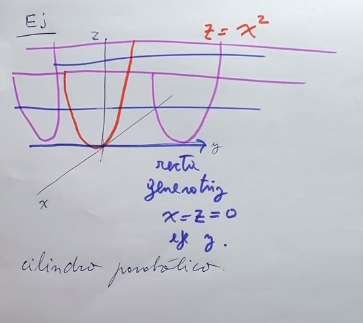 Ej
z = x²
z
y
x
recta
generatriz
x = z = 0
eje y.
cilindro parabólico.